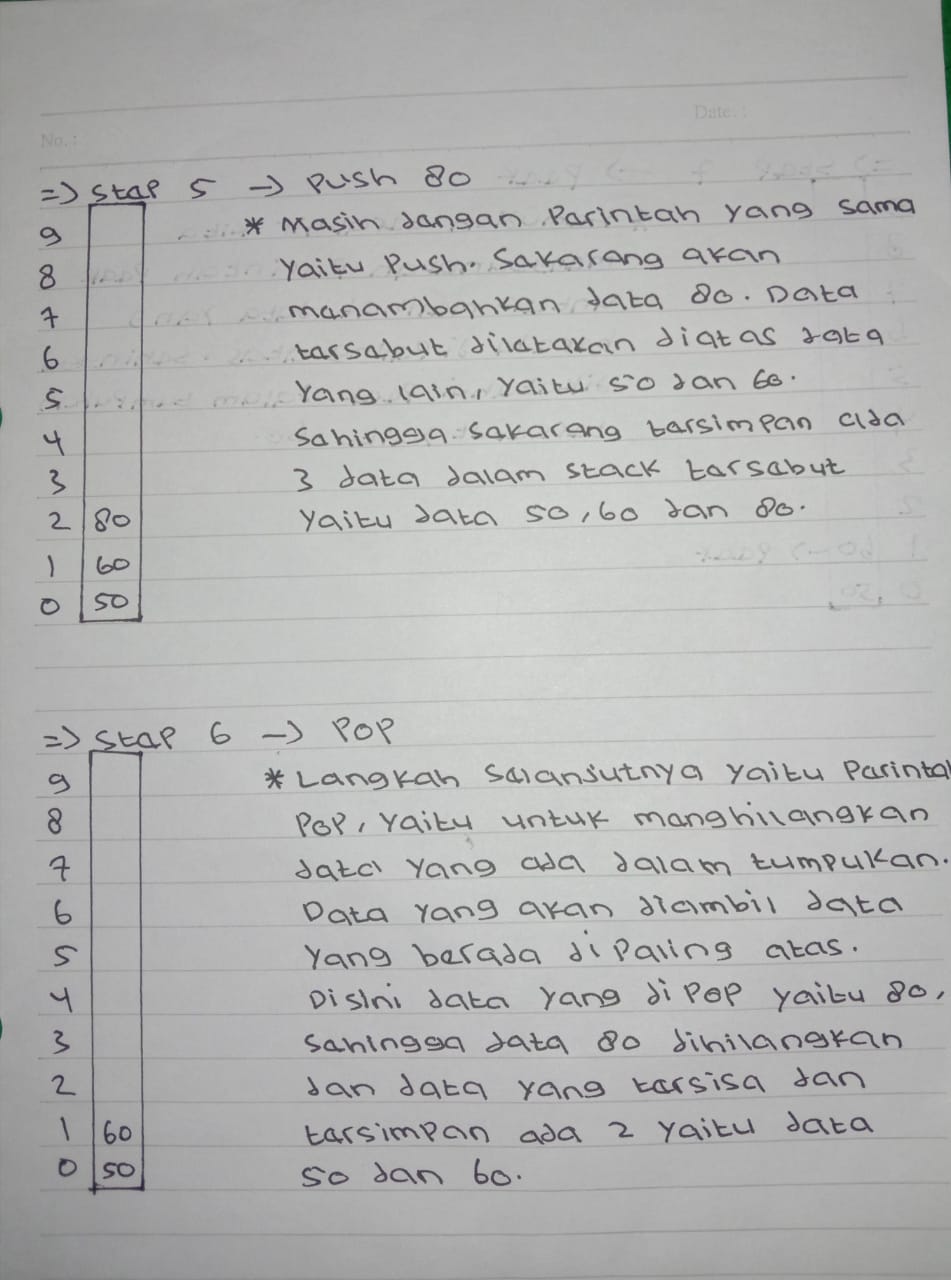 No. :
Date. :
=> Stap 5 -> Push 80
9 * Masih dangan Parintah yang sama
8 yaitu Push. Sakarang akan
7 manambahkan data 80. Data
6 tarsabut dilatakan diatas data
5 yang lain, yaitu 50 dan 60.
4 Sahingga sakarang tarsimpan ada
3 3 data dalam stack tarsabut
2 80 yaitu data 50, 60 dan 80.
1 60
0 50
=> Stap 6 -> POP
9 * Langkah Salanjutnya yaitu Parintah
8 POP, yaitu untuk manghilangkan
7 data yang ada dalam tumpukan.
6 Data yang akan diambil data
5 yang berada di Paling atas.
4 Disini data yang di POP yaitu 80,
3 sahingga data 80 dihilangkan
2 dan data yang tarsisa dan
1 60 tarsimpan ada 2 yaitu data
0 50 50 dan 60.